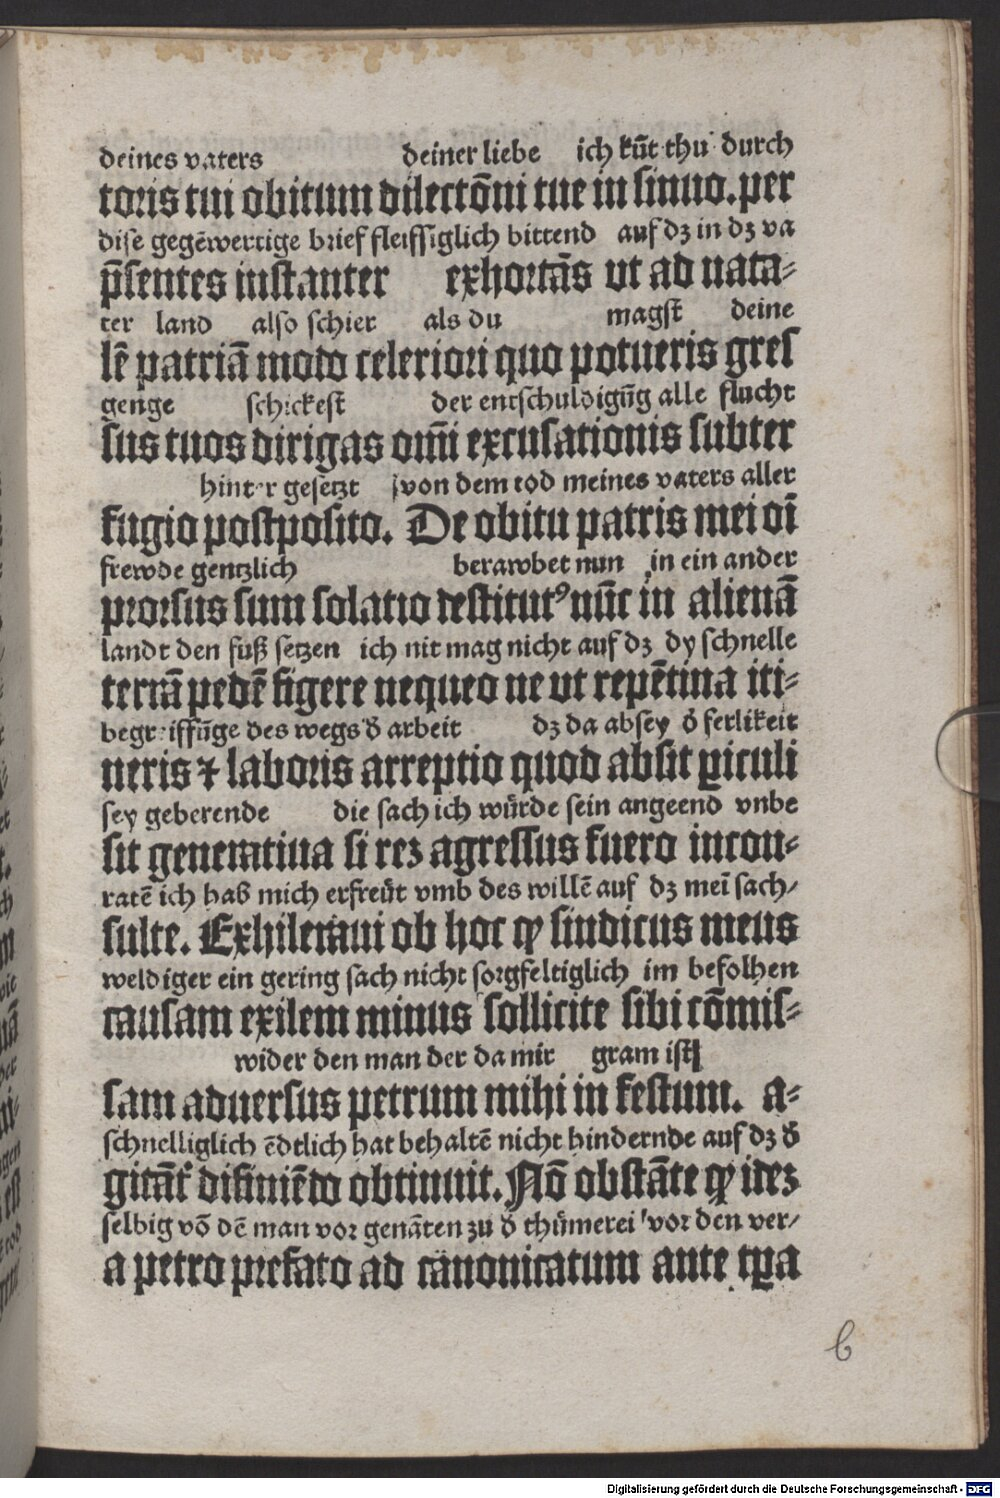 deines vaters deiner liebe ich kūt thu durch
toris tui obitum dilectōni tue in sinuo. per
dise gegēwertige brief fleissiglich bittend auf dz in dz va
p̄sentes instanter exhortās ut ad nata-
ter land also schier als du magst deine
lē patriā modo celeriori quo potueris gres
genge schickest der entschuldigūg alle flucht
sus tuos dirigas om̄i excusationis subter
hinter gesetzt von dem tod meines vaters aller
fugio postposito. De obitu patris mei oī
frewde gentzlich berawbet nun in ein ander
prorsus sum solatio destitutꝰ nūc in alienā
landt den fuß setzen ich nit mag nicht auf dz dy schnelle
terrā pedē figere nequeo ne ut repētina iti-
begreiffūge des wegs d̄ arbeit dz da absey d̄ ferlikeit
neris ⁊ laboris arreptio quod absit ꝑiculi
sey geberende die sach ich würde sein angeend vnbe
sit generatiua si rez agressus fuero incon-
ratē ich hab mich erfreüt vmb des willē auf dz mei͞ sach/
sulte. Exhileraui ob hoc ꝙ sindicus meus
weldiger ein gering sach nicht sorgfeltiglich im befolhen
causam exilem minus sollicite sibi cōmis-
wider den man der da mir gram ist
sam aduersus petrum mihi in festum. a-
schnelliglich ēdtlich hat behaltē nicht hindernde auf dz d̄
gitāt᷑ difiniēdo obtinuit. Nō obstāte ꝙ idez
selbig vō dē man vor genāten zu d̄ thümerei vor den ver/
a petro prefato ad canonicatum ante tꝑa
b
Digitalisierung gefördert durch die Deutsche Forschungsgemeinschaft - DFG